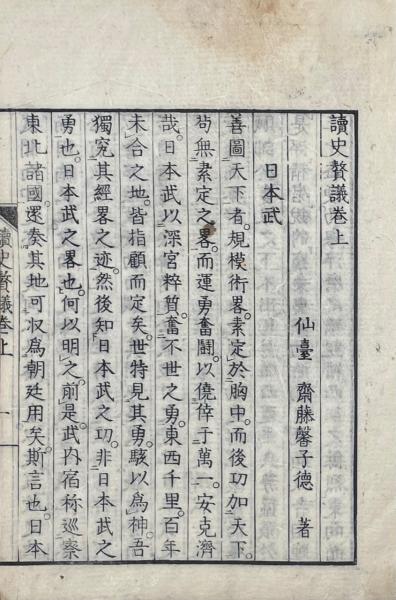 讀史贅議卷上
仙臺 齋藤馨子德 著
日本武
善圖天下者。規模術畧。素定於胸中。而後功加天下。
苟無素定之畧。而運勇奮鬪。以僥倖于萬一。安克濟
哉。日本武以深宮粹質。奮不世之勇。東西千里。百年
未合之地。皆指顧而定矣。世特見其勇。駭以為神。吾
獨究其經畧之迹。然後知日本武之功。非日本武之
勇也。日本武之畧也。何以明之。前是。武內宿祢巡察
東北諸國。還奏其地可收為朝廷用矣。斯言也。日本
讀史贅議卷上
一